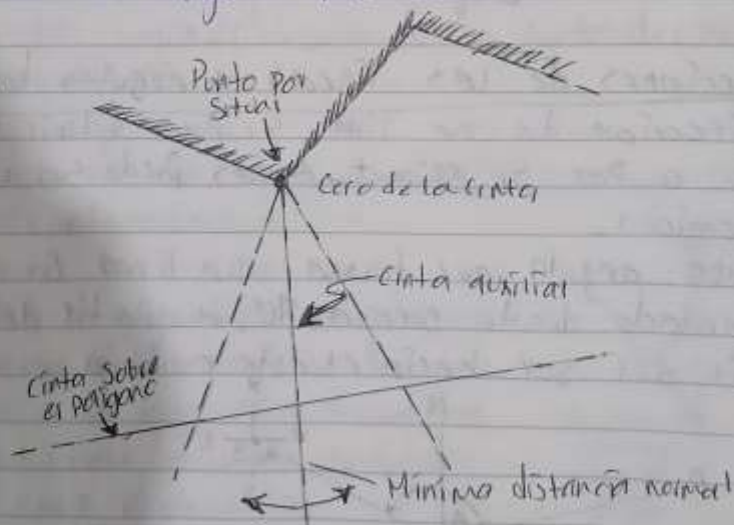 Punto por
Situar
Cero de la cinta
Cinta auxiliar
Cinta sobre
el polígono
Mínima distancia normal